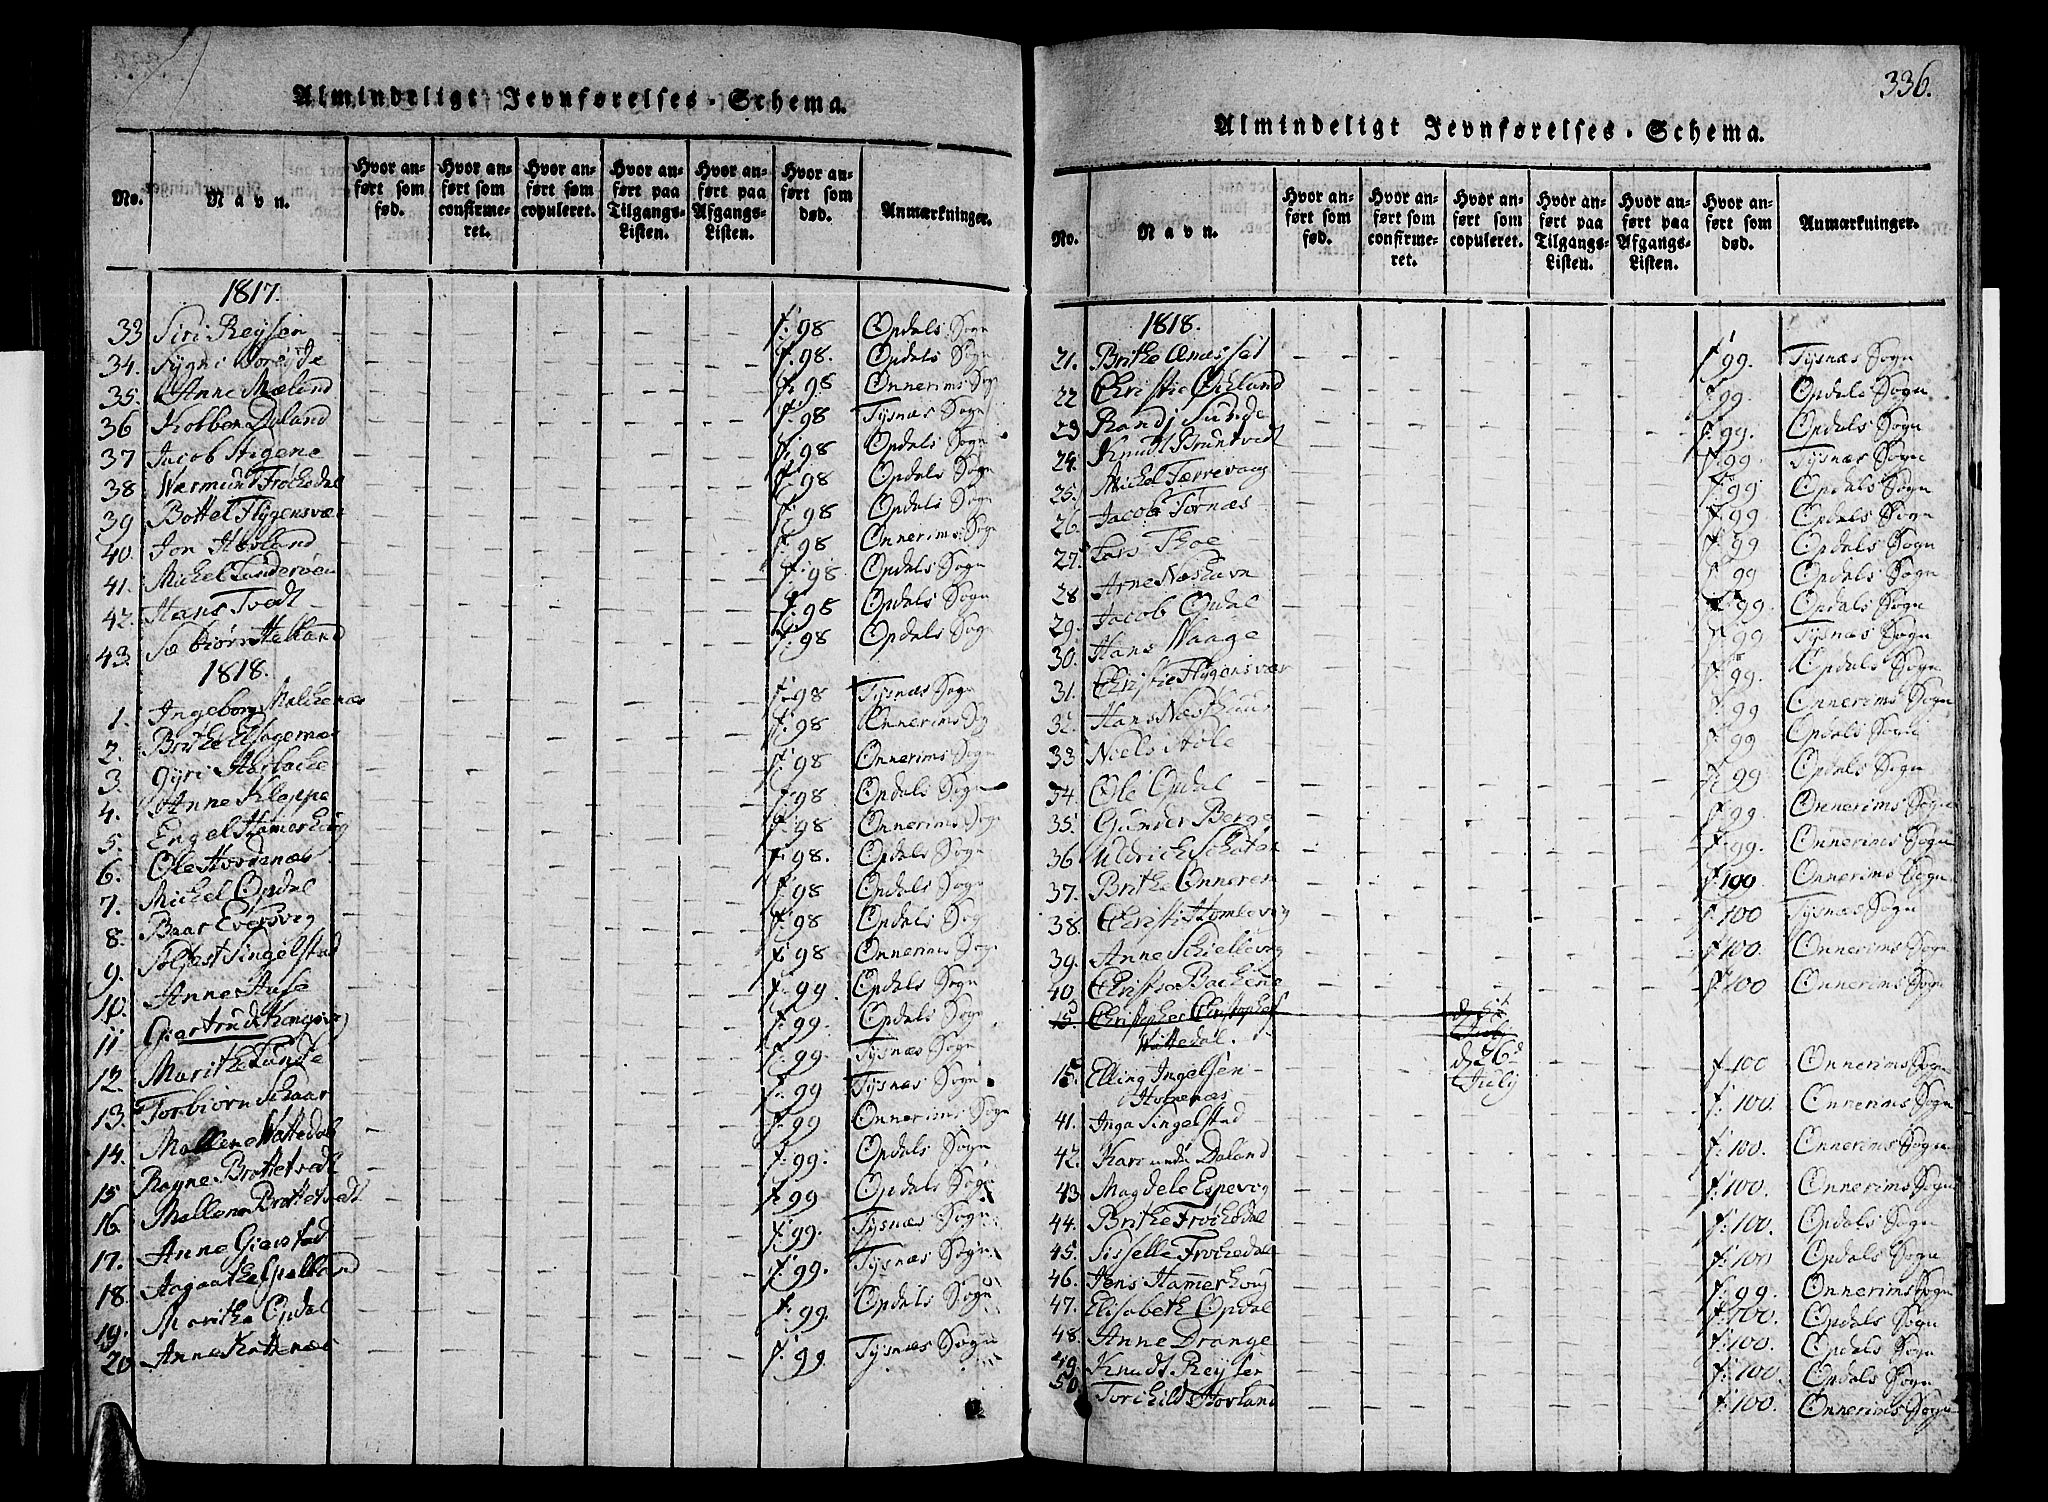 Almindeligt Jevnførelses-Schema.
No. Navn. Hvor anført som fød. Hvor anført som confirmeret. Hvor anført som copuleret. Hvor anført paa Tilgangs-Listen. Hvor anført paa Afgangs-Listen. Hvor anført som død. Anmærkninger.
1817.
33 Siri Reysen f: 98 Opdals Sogn
34. Sygni f: 98. Opdals Sogn
35. Anne Mæland f: 98 Onnerims Sog
36 Daland f: 98 Tysnæs Sogn
37 Jacob Stigene f: 98 Opdals Sogn
38 Wærmund Frøchedal f: 98 Opdals Sogn
39 Bottel Flygensvær f: 98 Opdals Sogn
40. Jon Hovland f: 98 Onnerims Sogn
41. Michel Sunderøen f: 98 Opdals Sogn
42. Hans Tvedt f: 98 Opdals Sogn
43. Sæbiørn Helland f: 98 Opdals Sogn
1818.
1. Ingeborg Malchenæs f: 98 Tysnæs Sogn
2. Brithe f: 98 Onnerims Sog
3. Gyri f: 98 Onnerims Sogn
4. Anne Kleppe f: 98 Opdals Sogn
5. Engel Hamerhoug f: 98 Onnerims Sogn
6. Ole Hovdenæs f: 98. Opdals Sogn
7. Michel Opdal f: 98 Opdals Sogn
8. Baar Eversvig f: 98 Opdals Sog
9. Singelstad f: 98 Onnerims Sogn
10. Anne Huse f: 99. Opdals Sogn
11 Giertrud f: 99. Opdals Sogn
12. Marithe Sunde f: 99 Tysnæs Sogn
13. Torbiørn Skaar f: 99 Tysnæs Sogn
14. Mallene Wattedal f: 99 Onnerims Sogn
15 Ragne Brottetvedt f: 99. Opdals Sogn
16. Mallene Brottetvedt f: 99 Opdals Sogn
17. Anne Gierstad f: 99. Tysnæs Sogn
18. Aagaathe f: 99. Tysnæs Sogn
19. Maritha Opdal f: 99 Opdals Sogn
20 Anne Kottenæs f: 99 Tysnæs Sogn
336.
Almindeligt Jevnførelses-Schema.
No. Navn. Hvor anført som fød. Hvor anført som confirmeret. Hvor anført som copuleret. Hvor anført paa Tilgangs-Listen. Hvor anført paa Afgangs-Listen. Hvor anført som død. Anmærkninger.
1818.
21. Brithe f: 99. Tysnæs Sogn
22 Christie Øchland f: 99. Opdals Sogn
23 Randi Sunde f: 99. Opdals Sogn
24. Knudt Bruntvedt f: 99 Tysnæs Sogn
25. Michel Tærrevaag f: 99 Opdals Sogn
26. Jacob Tornæs f: 99 Opdals Sogn
27. Lars f: 99 Opdals Sogn
28 Arne Næshavn f: 99 Opdals Sogn
29. Jacob Opdal f: 99. Opdals Sogn
30. Hans Waage f: 99 Tysnæs Sogn
31. Christie Flygensvær f: 99. Opdals Sogn
32. Hans f: 99 Onnerims Sogn
33 Niels Støle f: 99 Opdals Sogn
34. Ole Opdal f: 99 Opdals Sogn
35. Gunder Berge f: 99 Onnerims Sogn
36 Uldrich Schaten f: 99. Onnerims Sogn
37. Brithe Onneren f: 100 Onnerims Sogn
38. Christi Homlevog f: 100 Tysnæs Sogn
39. Anne Schiellevog f: 100. Onnerims Sogn
40. Christie Bachene f: 100 Onnerims Sogn
15 Christopher Christophers d. 6t
Wattedal. July
15 Elling Ingelsen d. 26d f: 100 Onnerims Sogn
Hovdenæs July
41. Inga Singelstad f: 100. Onnerims Sogn
42. Kari Daland f: 100. Onnerims Sogn
43 Magdele Espevog f: 100. Onnerims Sogn
44. Brithe Frøchedal f: 100. Opdals Sogn
45. Sisselle Frøchedal f: 100 Opdals Sogn
46. Jens Hamerhoug f: 99. Onnerims Sogn
47. Elisabeth Opdal f: 100. Opdals Sogn
48. Anne Drange f: 100. Opdals Sogn
49. Knudt Reysen f: 100. Opdals Sogn
50. Torchild Hovland f: 100. Onnerims Sogn